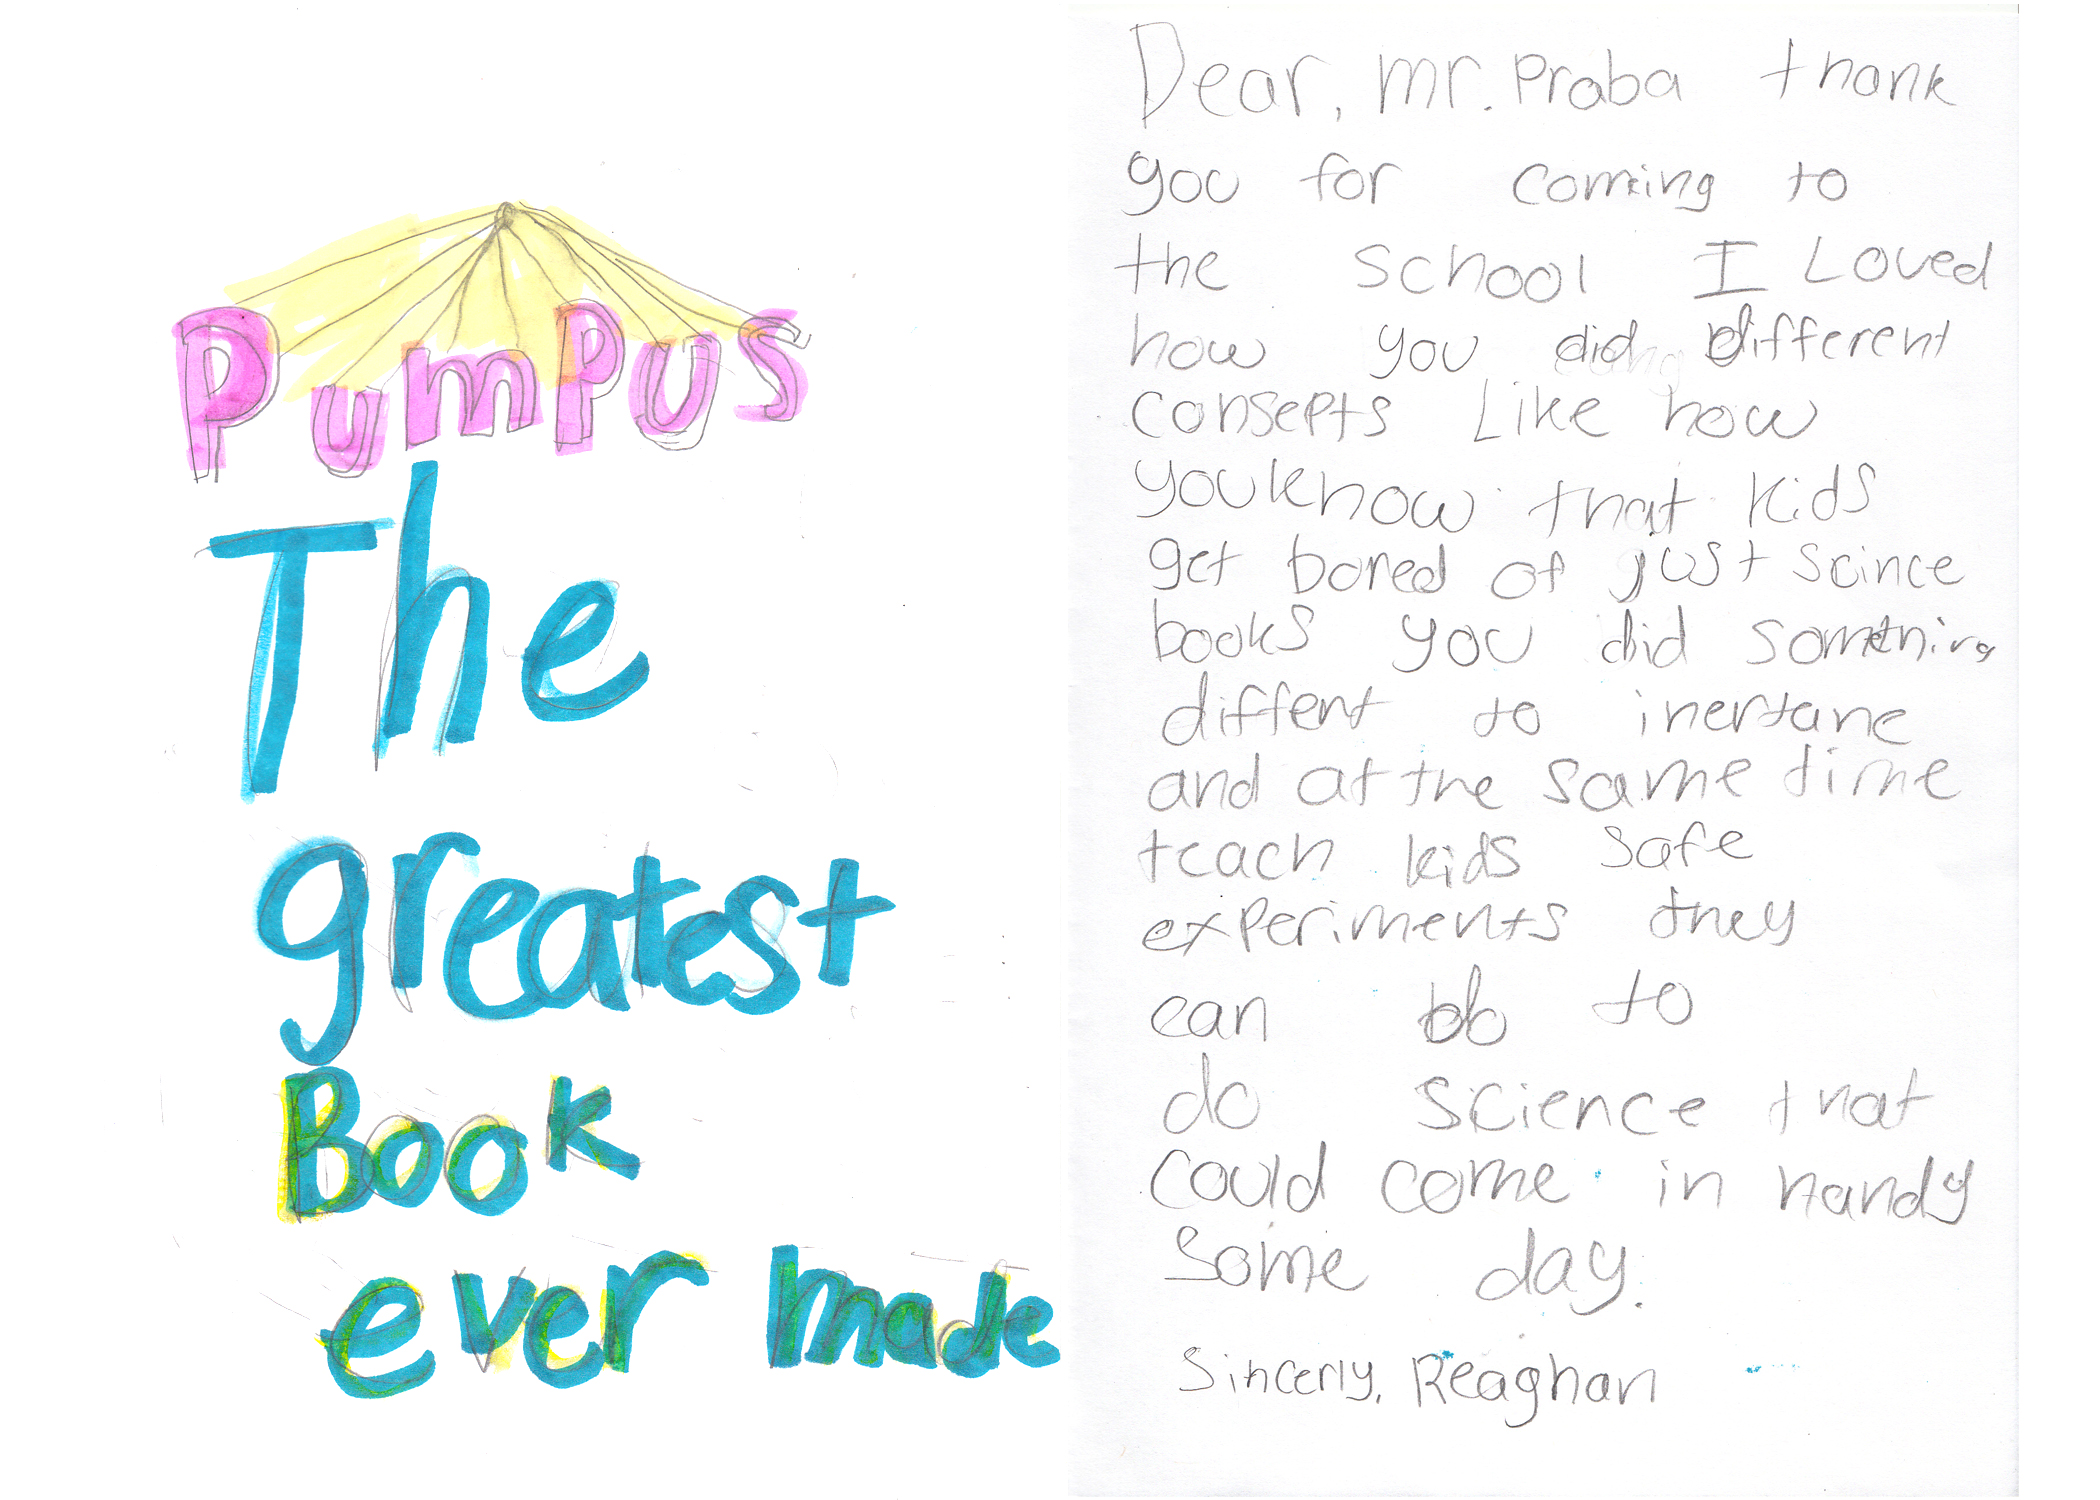 PumPUS
The
greatest
Book
ever made
Dear, mr. Praba thank
you for coming to
the school I Loved
how you did different
consepts Like how
you know that kids
get bored of just scince
books you did something
diffent to inertane
and at the same time
teach kids safe
experiments they
can to
do science that
could come in handy
some day.
Sincerly, Reaghan